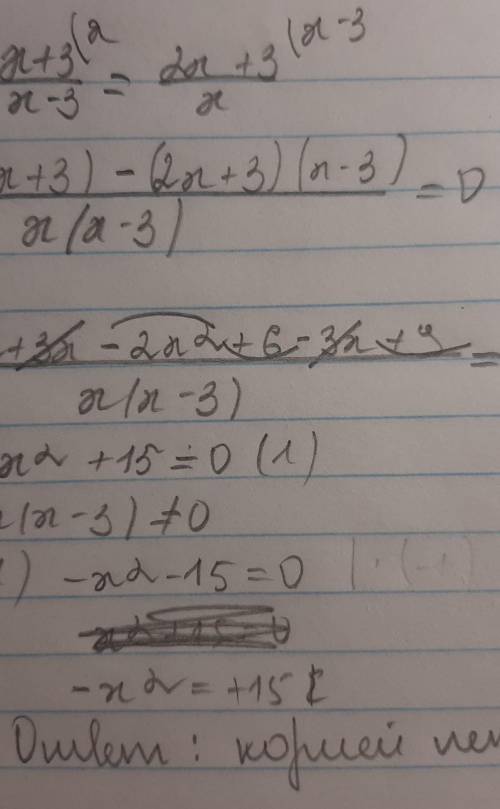 x+3(x / x-3 = 2x+3(x-3 / x
x+3) - (2x+3)(x-3) / x(x-3) = 0
+3x - 2x²+6-3x+9 / x(x-3) =
x² +15 = 0 (1)
(x-3) ≠ 0
) -x²-15=0 |·(-1)
-x² = +15
Ответ: корней